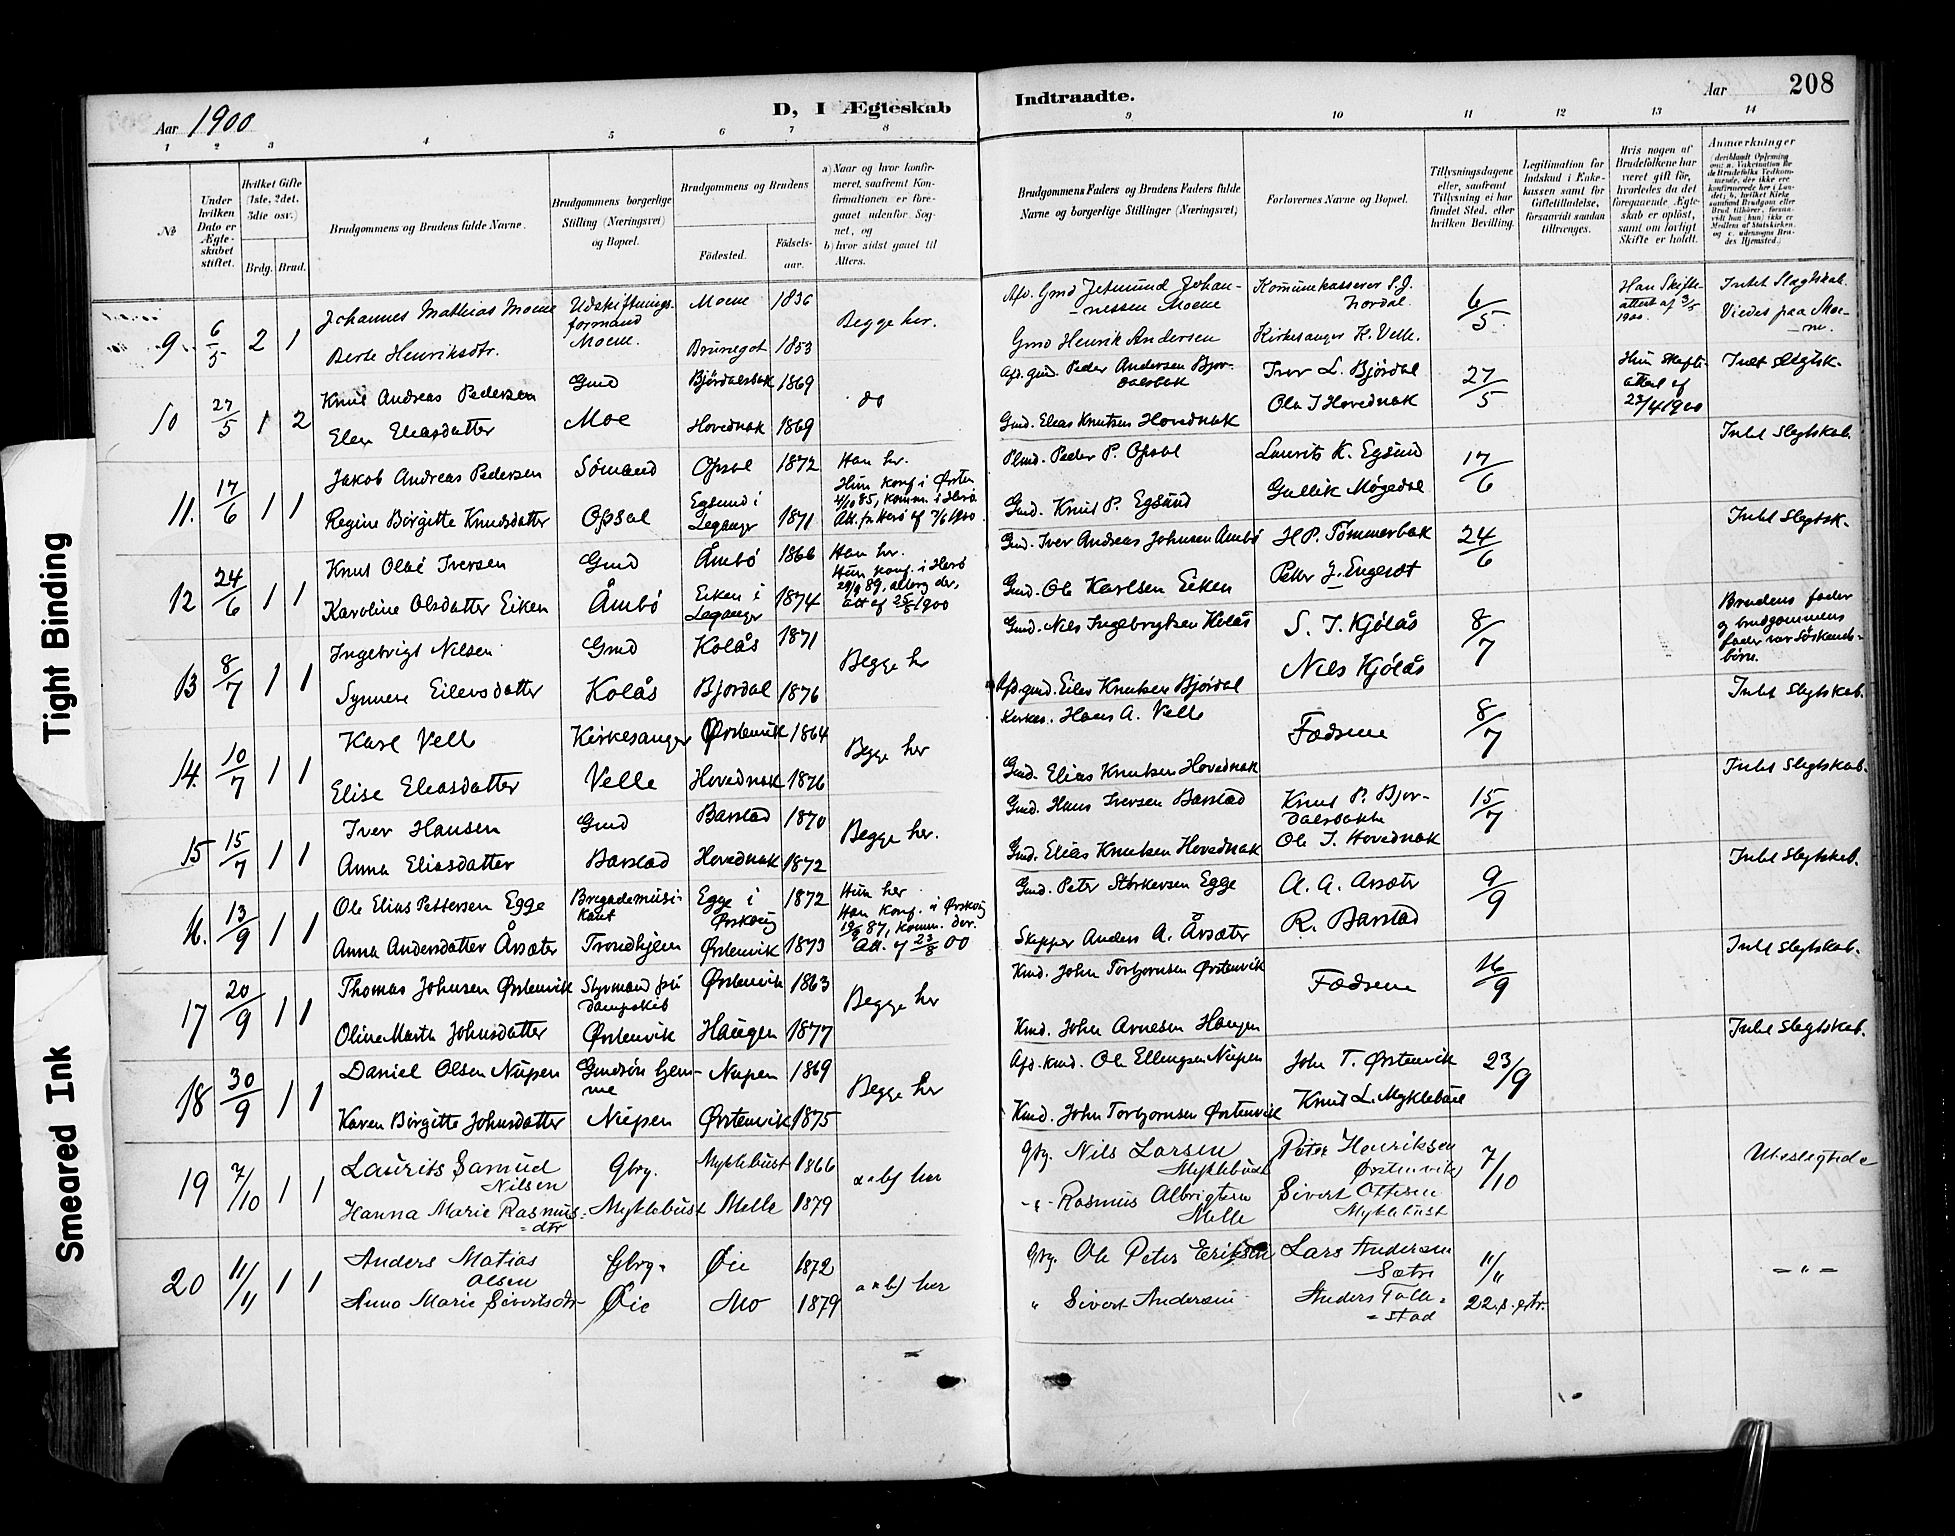 208
Aar 1900
D, I Ægteskab
Indtraadte.
Aar
1 2 3 4 5 6 7 8 9 10 11 12 13 14
No
Under hvilken Dato er Ægteskabet stiftet.
Hvilket Gifte (1ste, 2det, 3die osv.)
Brdg. Brud.
Brudgommens og Brudens fulde Navne.
Brudgommens borgerlige Stilling (Næringsvei) og Bopæl.
Brudgommens og Brudens
Fødested.
Fødselsaar.
a) Naar og hvor konfirmeret, saafremt Konfirmationen er foregaaet udenfor Sognet, og
b) hvor sidst gaaet til Alters.
Brudgommens Faders og Brudens Faders fulde Navne og borgerlige Stillinger (Næringsvei)
Forlovernes Navne og Bopæl.
Tillysningsdagene eller, saafremt Tillysning ei har fundet Sted, efter hvilken Bevilling.
Legitimation for Indskud i Enkekassen samt for Giftetilladelse, forsaavidt saadan tiltrænges.
Hvis nogen af Brudefolkene har været gift før, hvorledes da det foregaaende Ægteskab er opløst, samt om lovligt Skifte er holdt.
Anmærkninger
9 6/5 2 1 Johannes Mathias Moene Udskiftningsformand Moene 1836 Begge her. Afd. Gmd Jetmund Johannessen Moene Kommunekasserer S. J. 6/5 Han Skifteattest af 3/5 1900. Intet Slegtskab. Viedes paa Moene.
Berte Henriksdtr. Moene. Brunegot 1853 Gmd Henrik Andersen Kirkesanger K. Velle.
10 27/5 1 2 Knut Andreas Pedersen Gmd Bjørdalsbak 1869 do Afd. gmd. Peder Andersen Bjordalsbak Iver L. Bjørdal 27/5 Hun Skifteattest af 23/4 1900 Intet Slegtsk.
Elen Eleasdatter Moe Hovednak 1869 Gmd. Elias Knutsen Hovednak Ola I Hovednak
11. 17/6 1 1 Jakob Andreas Pedersen Sømand Opsal 1872 Han her. Plmd. Peder P. Opsal Laurits K. Egsund 17/6 Intet Slegtskab.
Regine Birgitte Knudsdatter Opsal Egsund i Leganger 1871 Hun konf. i Ørsten 4/10 85, komm. i Herø Att. fr. Herø af 7/6 1900. Gmd. Knut P. Egsund Gullik Møgedal
12 24/6 1 1 Knut Olai Iversen Gmd Åmbø 1866 Han her. Gmd. Iver Andreas Johnsen Åmbø H P. Tømmerbak 24/6 Intet Slegtsk.
Karoline Olsdatter Eiken Åmbø Eiken i Leganger 1874 Hun konf. i Herø Gmd. Ole Karlsen Eiken Peter J. Engeset
13 8/7 1 1 Ingebrigt Nilsen Gmd Kolås 1871 Begge her Gmd. Nils Ingebrygtsen Kolås S. I. Kjölås 8/7 Brudens fader og brudgommens fader var Söskendebörn.
Synnere Eilersdatter Kolås Bjordal 1876 Afd gmd. Eiler Knutsen Bjørdal Nils Kjölås
14. 10/7 1 1 Karl Velle Kirkesanger Ørstenvik 1864 Begge her Kirkes. Hans A. Velle Fædrene 8/7 Intet Slegtskab.
Elise Eleasdatter Velle Hovednak 1876 Gmd. Elias Knutsen Hovednak
15 15/7 1 1 Iver Hansen Gmd Barstad 1870 Begge her. Gmd. Hans Iversen Barstad Knut P. Bjordalsbakke 15/7 Intet Slegtskab.
Anna Eliasdatter Barstad Hovednak 1872 Gmd. Elias Knutsen Hovednak Ole I. Hovednak
16. 13/9 1 1 Ole Elias Pettersen Egge Brigademusikant Egge i Ørskoug 1872 Hun her Gmd. Peter Størkersen Egge A. A. Årsæter 9/9 Intet Slegtskab.
Anna Andersdatter Årsæter Trondhjem Ørstenvik 1873 Han konf. i Ørskoug 87, komm. der. Att. af 23/8 00 Skipper Anders A. Årsæter R. Barstad
17 20/9 1 1 Thomas Johnsen Ørstenvik Styrmand på dampskib Ørstenvik 1863 Begge her Kmd. John Torbjornsen Ørstenvik Fædrene 16/9 Intet Slegtskab.
Oline Marta Johnsdatter Ørstenvik Haugen 1877 Kmd. John Arnesen Haugen
18 30/9 1 1 Daniel Olsen Nupen Gmdsön hjemme Nupen 1869 Begge her Afd. Kmd. Ole Ellingsen Nupen John T. Ørstenvik 23/9 Intet Slegtskab.
Karen Birgitte Johnsdatter Nupen Ørstenvik 1875 Kmd. John Torbjornsen Ørstenvik Knut L. Myklebust
19 7/10 1 1 Laurits Samuel Nilsen Gbrg. Myklebust 1866 a & b) her Gbrg. Nils Larsen Myklebust Peter Henriksen Ørstenvik 7/10 Ubeslegtede
Hanna Marie Rasmusdtr Myklebust Melle 1879 -"- Rasmus Albrigtsen Melle Sivert Ottesen Myklebust
20 11/11 1 1 Anders Matias Olsen Gbrg. Øie 1872 a & b) her Gbrg. Ole Peter Eriksen Lars Andersen Sætre 11/11 -"-
Anna Marie Sivertsdtr Øie Mo 1879 " Sivert Andersen Anders Follestad 22. s. e. tr.
Tight Binding
Smeared Ink